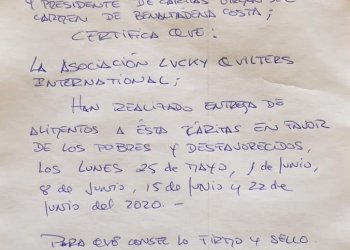 Y PRESIDENTE DE CÁRITAS VIRGEN DEL
CARMEN DE BENALMÁDENA COSTA;
CERTIFICA QUE:
LA ASOCIACIÓN LUCKY QUILTERS
INTERNATIONAL;
HAN REALIZADO ENTREGA DE
ALIMENTOS A ÉSTA CÁRITAS EN FAVOR
DE LOS POBRES Y DESFAVORECIDOS,
LOS LUNES 25 DE MAYO, 1 de Junio,
8 de Junio, 15 de Junio y 22 de
Junio del 2020.-
PARA QUE CONSTE LO FIRMO Y SELLO